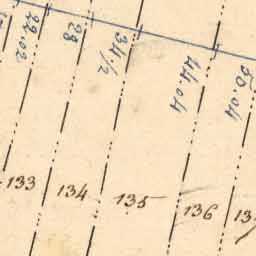 22.02
28
34 1/2
44.04
50.04
133
134
135
136